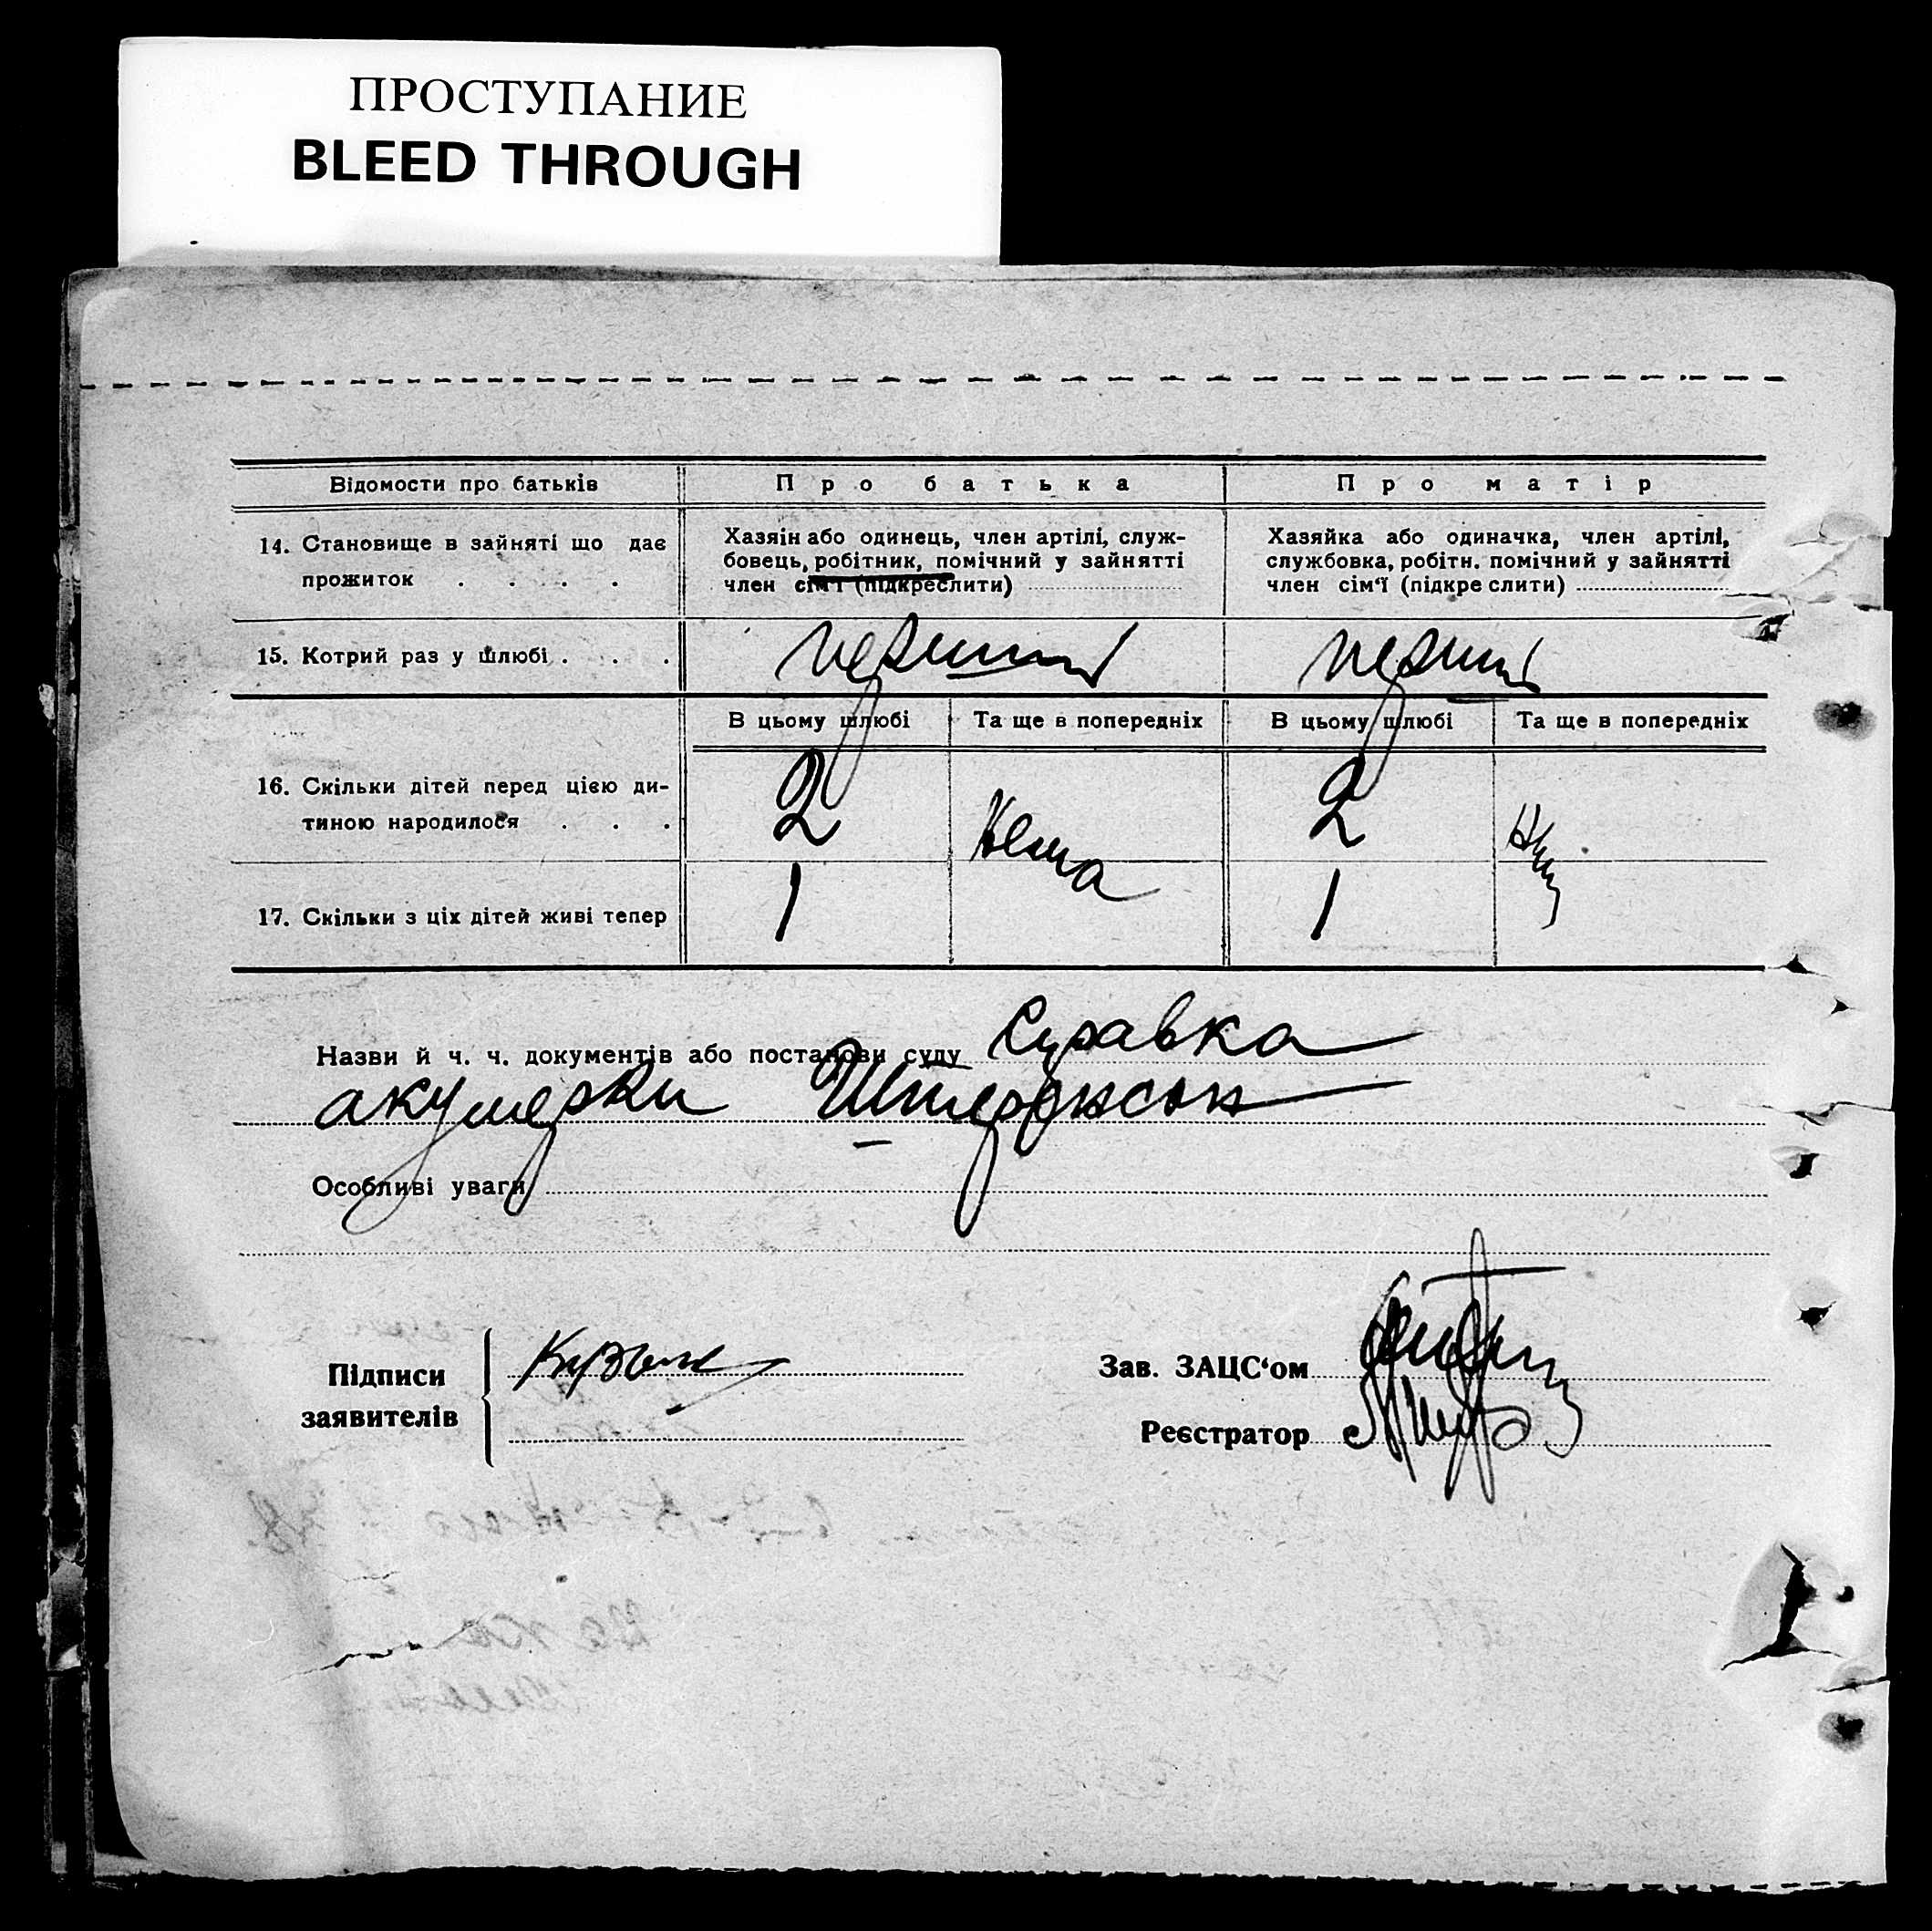 ПРОСТУПАНИЕ
BLEED THROUGH
Відомости про батьків
Про батька
Про матір
14. Становище в зайняті що дає
прожиток . . . .
Хазяін або одинець, член артілі, служ-
бовець, робітник, помічний у зайнятті
член сім'ї (підкреслити)
Хазяйка або одиначка, член артілі,
службовка, робітн. помічний у зайнятті
член сім'ї (підкре слити)
15. Котрий раз у шлюбі . . .
перший
перший
В цьому шлюбі
Та ще в попередніх
В цьому шлюбі
Та ще в попередніх
16. Скільки дітей перед цією ди-
тиною народилося . . .
2
Нема
2
17. Скільки з ціх дітей живі тепер
1
1
Назви й ч. ч. документів або постанови суду Справка
акушерки
Особливі уваги
Підписи
заявителів
Зав. ЗАЦС'ом
Реєстратор